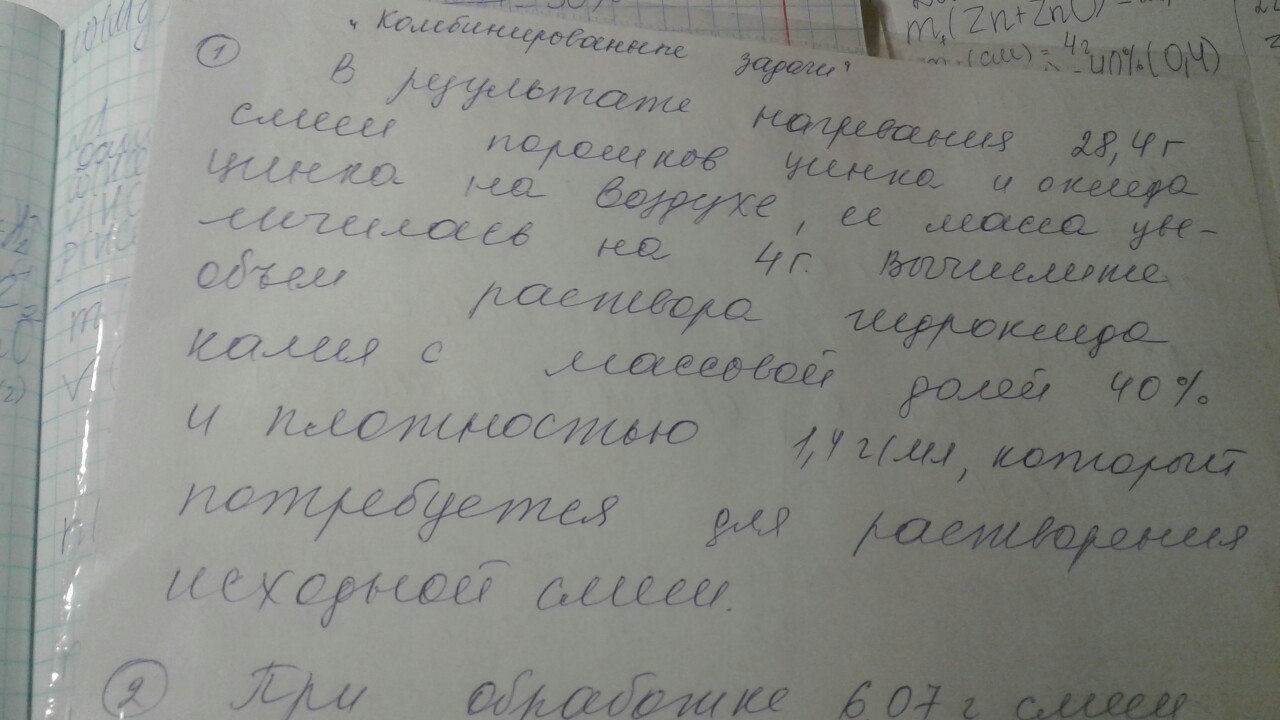 "Комбинированные задачи"
1 В результате нагревания 28,4 г
смеси порошков цинка и оксида
цинка на воздухе, ее масса уве-
личилась на 4 г. Вычислите
объем раствора гидроксида
калия с массовой долей 40%
и плотностью 1,4 г/мл, который
потребуется для растворения
исходной смеси.
2 При обработке 6 07 г смеси
m1(Zn+ZnO)
40% (0,4)